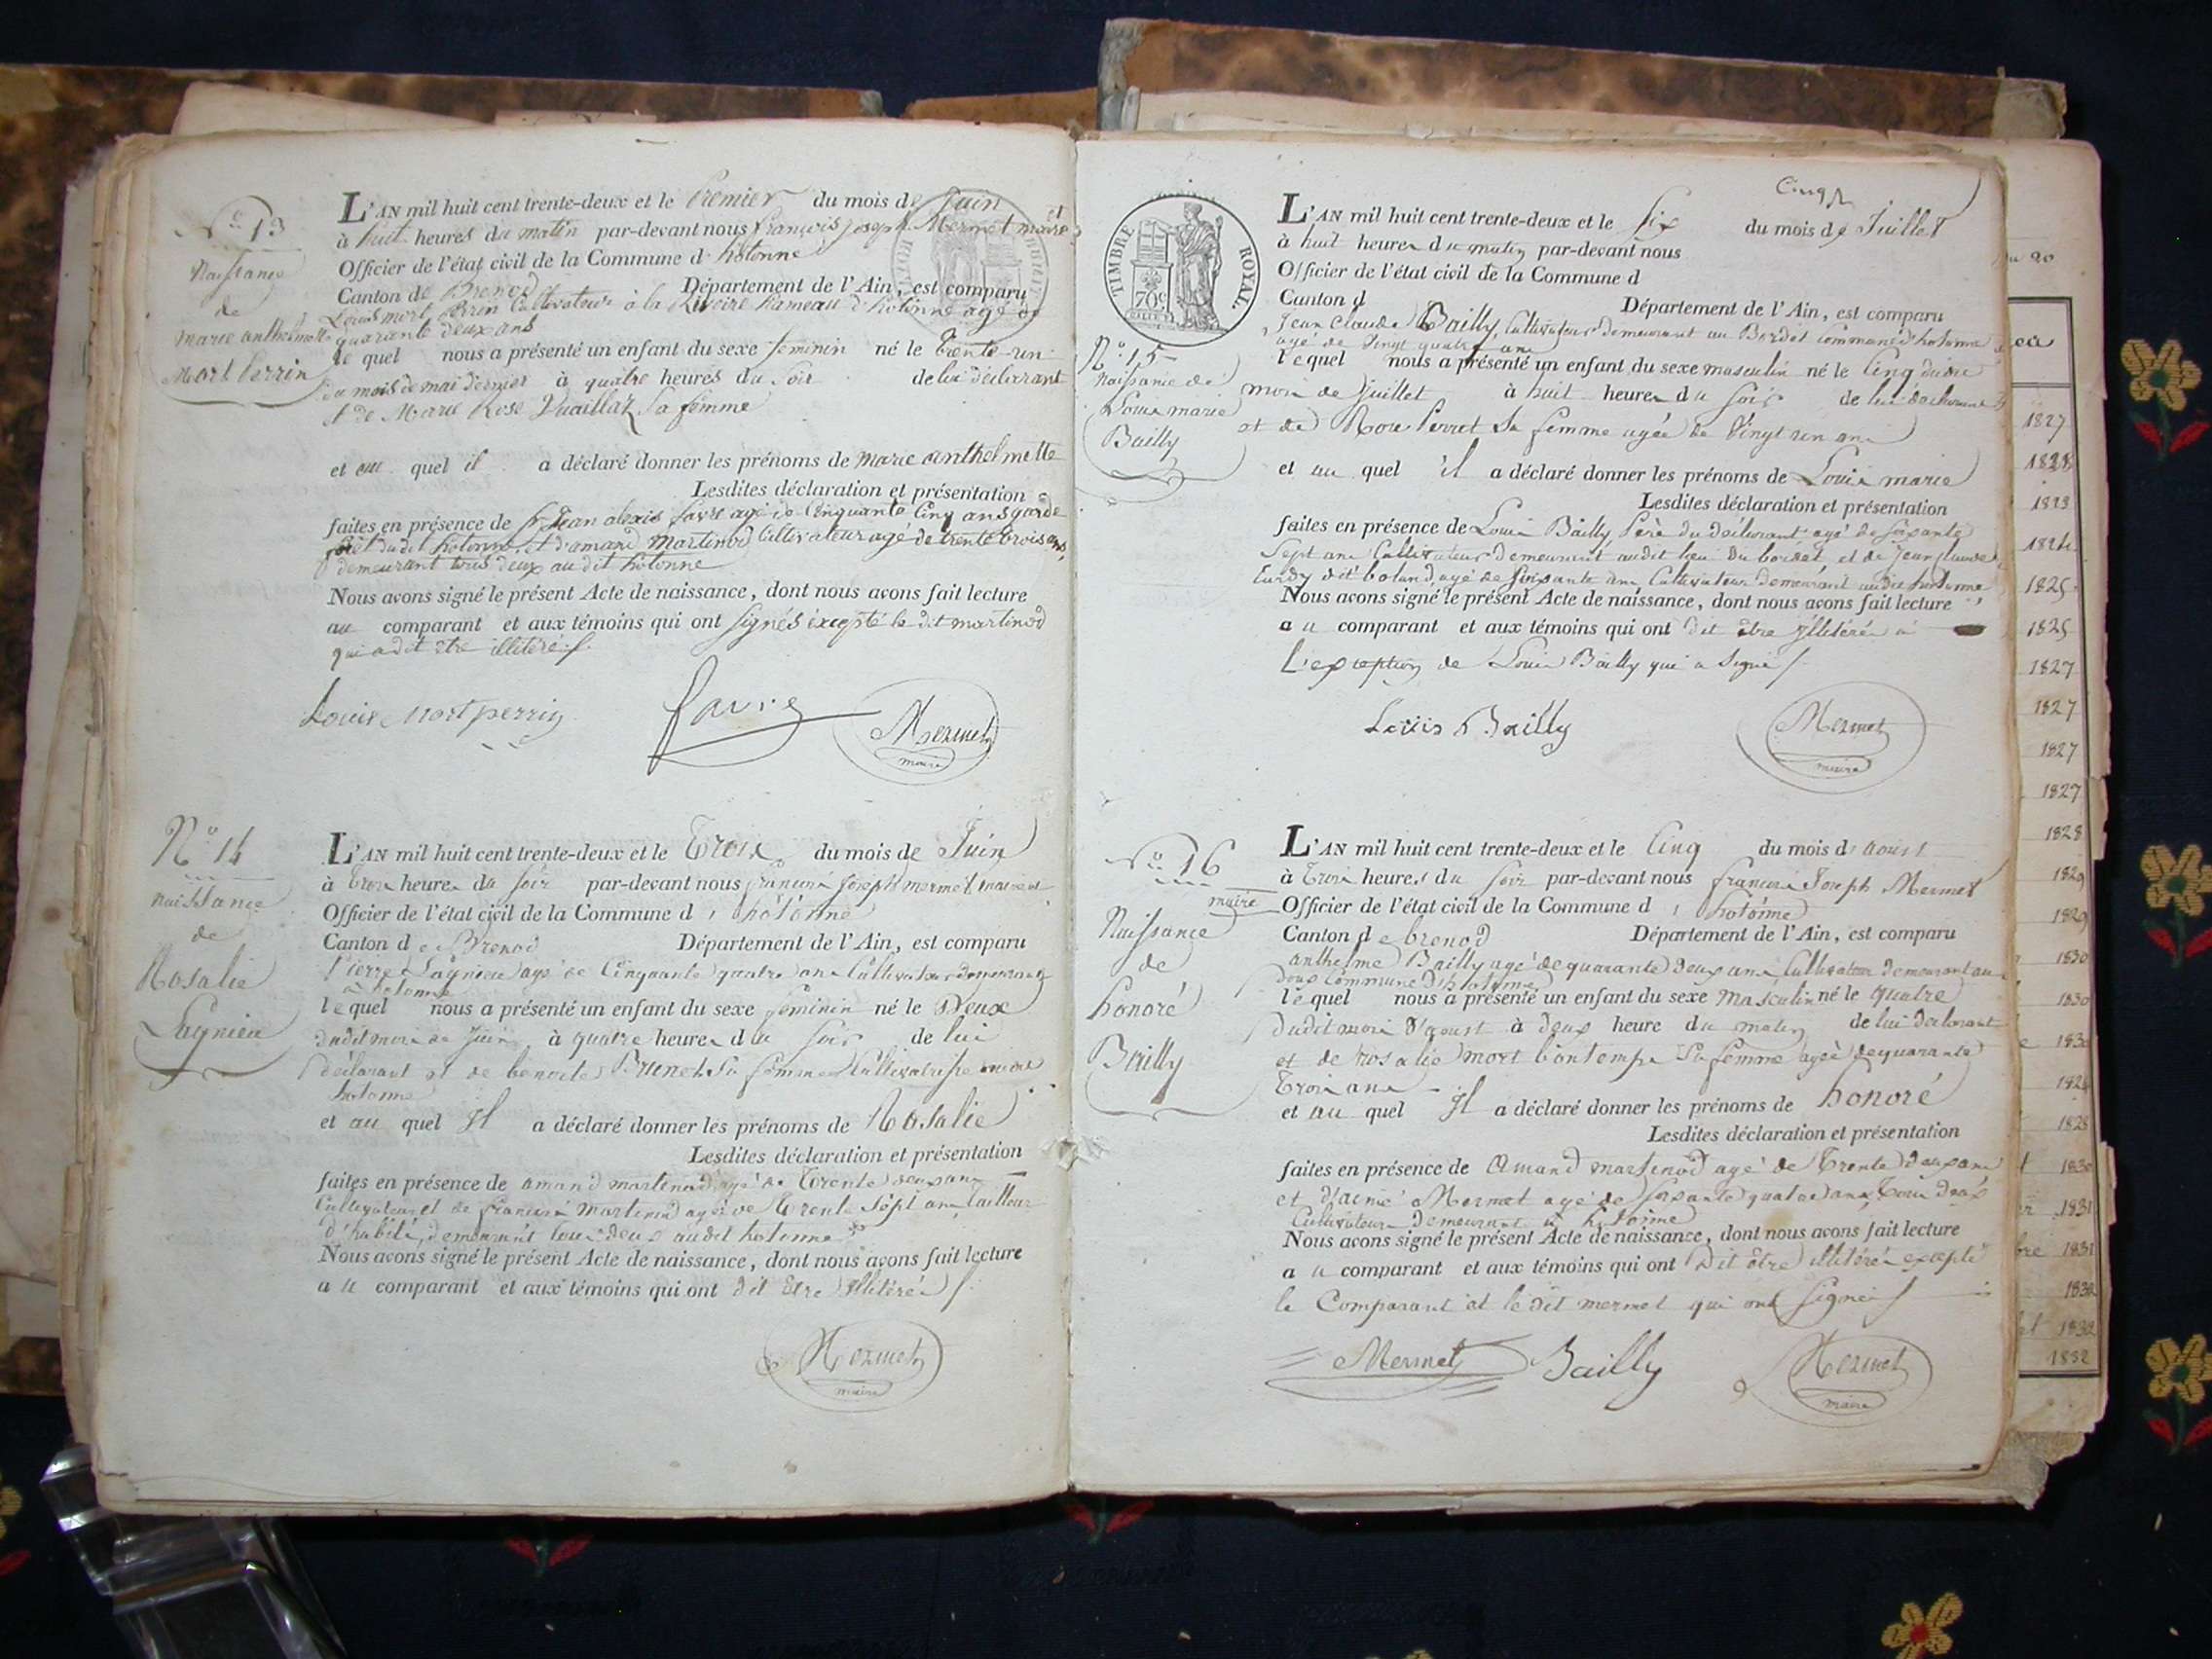 N.º 13
Naissance
de
marie anthelmette
Mort Perrin
L'AN mil huit cent trente-deux et le Premier du mois de Juin
à huit heures du matin par-devant nous françois joseph Mermet maire et
Officier de l'état civil de la Commune d'hotonne
Canton de Brenod Département de l'Ain, est comparu
Louis mort Perrin Cultivateur à la Rivoire hameau d'hotonne agé de
quarante deux ans
le quel nous a présenté un enfant du sexe feminin né le trente-un
du mois de mai dernier à quatre heures du soir de lui déclarant
et de Marie Rose Vuaillaz sa femme
et au quel il a déclaré donner les prénoms de marie anthelmette
Lesdites déclaration et présentation
faites en présence de Sr Jean alexis favre agé de Cinquante Cinq ans garde
forêt dudit hotonne et d'amand Martinod Cultivateur agé de trente trois ans
demeurant tous deux au dit hotonne
Nous avons signé le présent Acte de naissance, dont nous avons fait lecture
au comparant et aux témoins qui ont signés excepté le dit martinod
qui a dit etre illitéré
Louis Mort perrin favre Mermet
maire
N.º 14
naissance
de
Rosalie
Lagnieu
L'AN mil huit cent trente-deux et le Trois du mois de Juin
à trois heures du soir par-devant nous françois Joseph mermet maire et
Officier de l'état civil de la Commune d'hotonne
Canton de Brenod Département de l'Ain, est comparu
Pierre Lagnieu agé de Cinquante quatre ans Cultivateur demeurant
à hotonne
le quel nous a présenté un enfant du sexe feminin né le Deux
dudit mois de Juin à quatre heures du soir de lui
déclarant et de benoite Brunet sa femme Cultivatrice
hotonne
et au quel Il a déclaré donner les prénoms de Rosalie
Lesdites déclaration et présentation
faites en présence de amand martinod agé de Trente deux ans
Cultivateur et de françois martinod agé de trente sept ans tailleur
d'habits, demeurant tous deux audit hotonne
Nous avons signé le présent Acte de naissance, dont nous avons fait lecture
au comparant et aux témoins qui ont dit etre illitérés
Mermet
maire
Cinq
TIMBRE ROYAL
70c
N.º 15
naissance de
Louis marie
Bailly
L'AN mil huit cent trente-deux et le Six du mois de Juillet
à huit heures du matin par-devant nous
Officier de l'état civil de la Commune d
Canton d Département de l'Ain, est comparu
Jean Claude Bailly, Cultivateur demeurant au Bordet commune d'hotonne
agé de vingt quatre ans
le quel nous a présenté un enfant du sexe masculin né le Cinq du
mois de Juillet à huit heures du soir de lui déclarant
et de Rose Perret sa femme agée de vingt un ans
et au quel il a déclaré donner les prénoms de Louis marie
Lesdites déclaration et présentation
faites en présence de Louis Bailly Père du déclarant agé de soixante
Sept ans Cultivateur demeurant audit lieu du bordet, et de Jean claude
dit boland, agé de soixante ans Cultivateur demeurant audit hotonne
Nous avons signé le présent Acte de naissance, dont nous avons fait lecture
au comparant et aux témoins qui ont dit être illitérés à
L'exception de Louis Bailly qui a signé
Louis Bailly Mermet
maire
N.º 16
Naissance
de
honoré
Bailly
L'AN mil huit cent trente-deux et le Cinq du mois d'aoust
à trois heures du soir par-devant nous françois Joseph Mermet
maire Officier de l'état civil de la Commune d'hotonne
Canton de brenod Département de l'Ain, est comparu
anthelme Bailly agé de quarante deux ans Cultivateur demeurant au
Commune d'hotonne
le quel nous a présenté un enfant du sexe masculin né le quatre
dudit mois d'aoust à deux heure du matin de lui déclarant
et de rosalie mort bontemps sa femme agée de quarante
trois ans
et au quel Il a déclaré donner les prénoms de honoré
Lesdites déclaration et présentation
faites en présence de Amand martinod agé de trente deux ans
et d'aimé Mermet agé de soixante quatre ans, tous deux
Cultivateurs demeurant à hotonne
Nous avons signé le présent Acte de naissance, dont nous avons fait lecture
au comparant et aux témoins qui ont Dit être illitérés excepté
le Comparant et le dit mermet qui ont signés
Mermet Bailly Mermet
maire
1827
1828
1827
1827
1827
1827
1828
1829
1829
1830
1830
1831
1831
1832
1832
1832